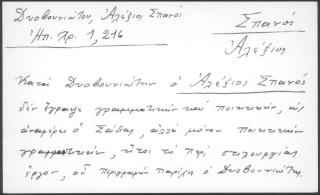 Δυοβουνιώτου, Ἀλέξιος Σπανός
Ἠπ. Χρ. 1, 216
Σπανός
Ἀλέξιος
Κατὰ Δυοβουνιώτην ὁ Ἀλέξιος Σπανός
δὲν ἔγραψε γραμματικὴν καὶ ποιητικήν, ὡς
ἀναφέρει ὁ Σάθας, ἀλλὰ μόνον ποιητικὴν
γραμματικήν, ἤτοι τὸ περὶ στιχουργίας
ἔργον, οὗ περιγραφὴν παρέχει ὁ Δυοβουνιώτης.